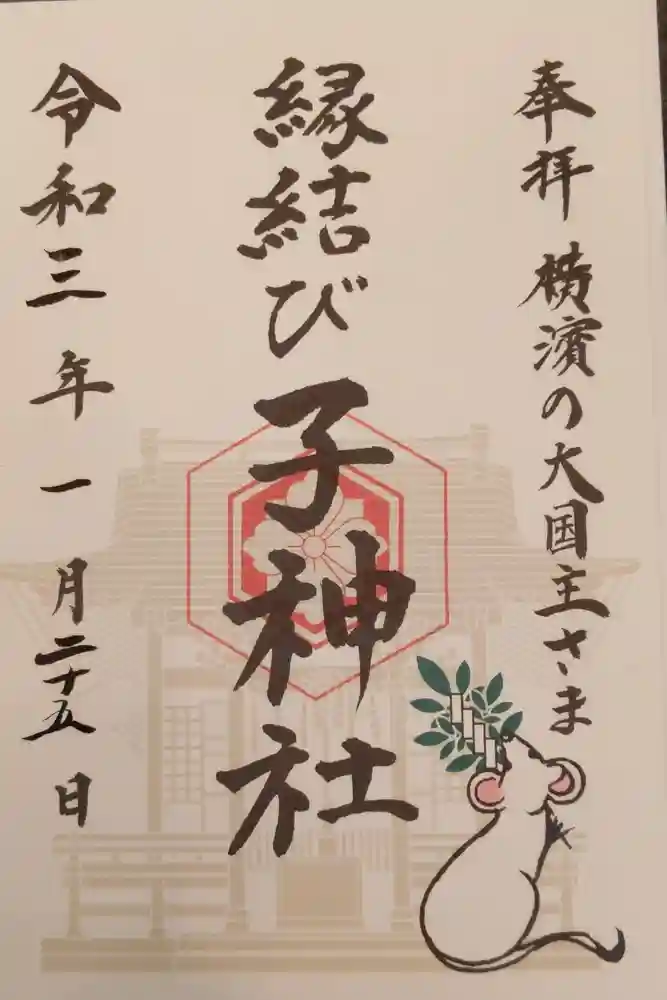 奉拝 横濱の大国主さま
縁結び子神社
令和三年一月二十五日